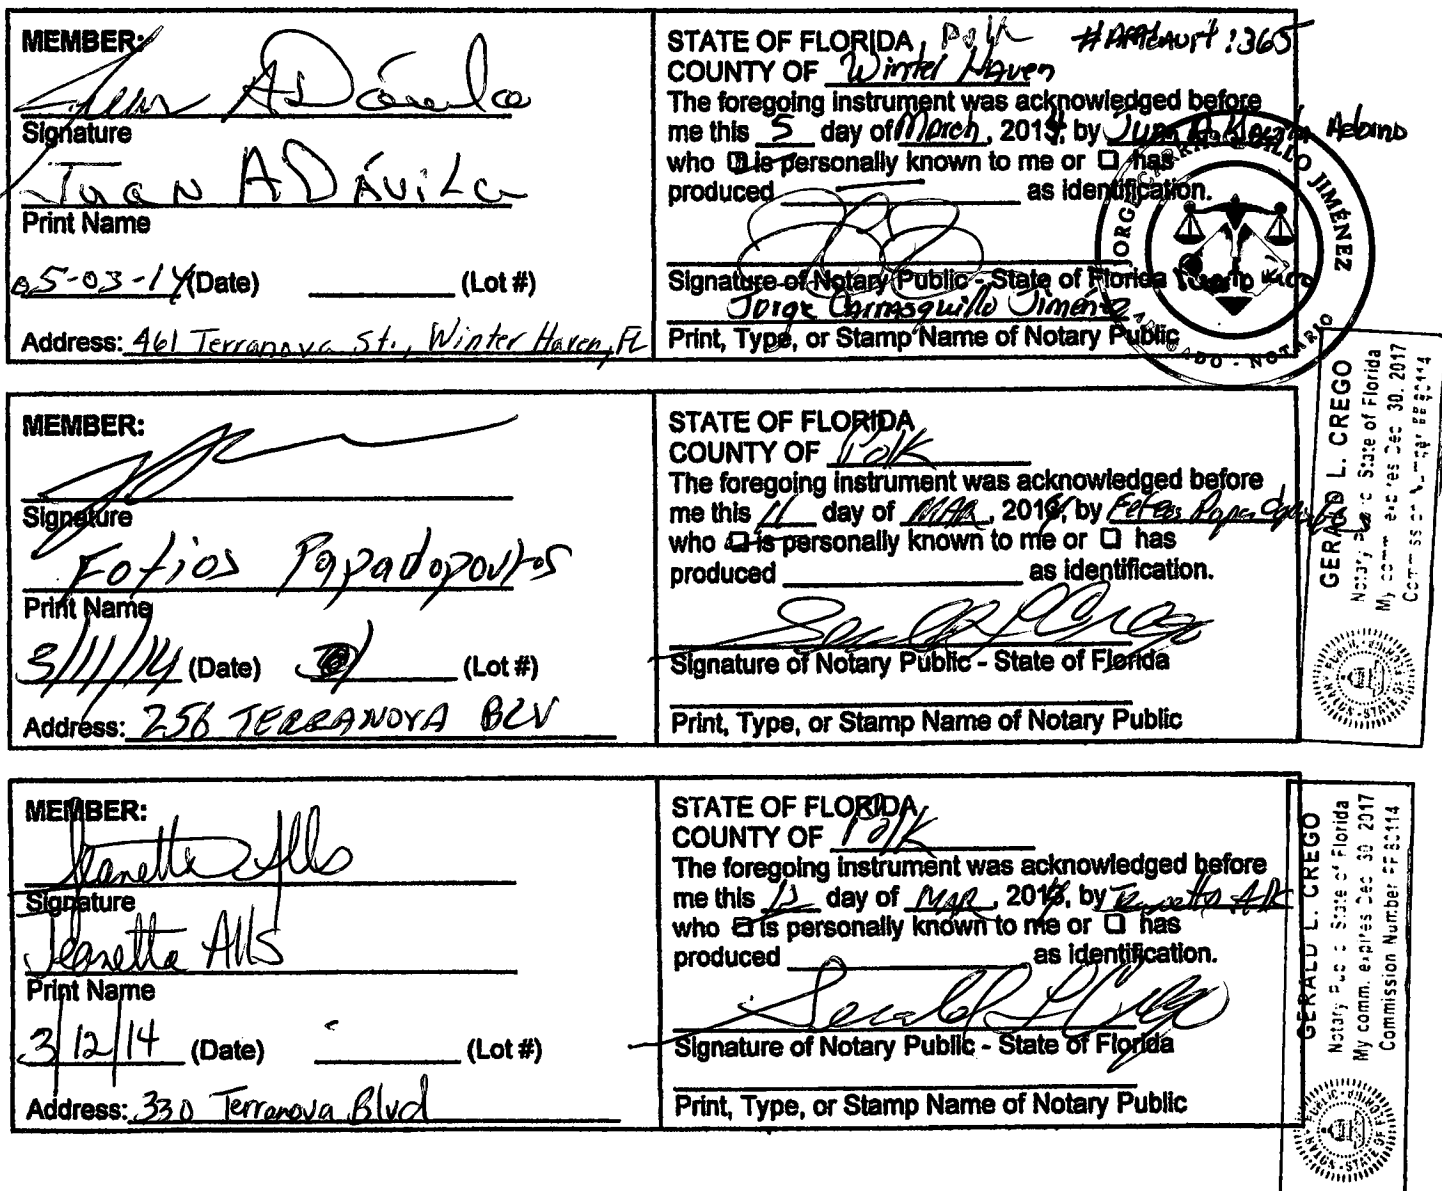 MEMBER:
Juan A Dávila
Signature
Juan A Dávila
Print Name
05-03-14 (Date) (Lot #)
Address: 461 Terranova St., Winter Haven, FL
STATE OF FLORIDA Polk :365
COUNTY OF Winter Haven
The foregoing instrument was acknowledged before
me this 5 day of March, 2014, by Juan A.
who ☐ is personally known to me or ☐ has
produced as identification.
Signature of Notary Public - State of Florida Puerto Rico
Jorge Carrasquillo Jiménez
Print, Type, or Stamp Name of Notary Public
JORGE CARRASQUILLO JIMÉNEZ
ABOGADO - NOTARIO
MEMBER:
Signature
Fotios Papadopoulos
Print Name
3/11/14 (Date) (Lot #)
Address: 256 TERRANOVA BLV
STATE OF FLORIDA
COUNTY OF Polk
The foregoing instrument was acknowledged before
me this 11 day of MAR, 2014, by Fotios Papadopoulos
who ☐ is personally known to me or ☐ has
produced as identification.
Gerald L Crego
Signature of Notary Public - State of Florida
Print, Type, or Stamp Name of Notary Public
GERALD L. CREGO
Notary Public State of Florida
My comm. expires Dec 30, 2017
Commission Number
MEMBER:
Jeanetta Alls
Signature
Jeanetta Alls
Print Name
3/12/14 (Date) (Lot #)
Address: 330 Terranova Blvd
STATE OF FLORIDA
COUNTY OF Polk
The foregoing instrument was acknowledged before
me this 12 day of MAR, 2014, by Jeanetta Alls
who ☐ is personally known to me or ☐ has
produced as identification.
Gerald L Crego
Signature of Notary Public - State of Florida
Print, Type, or Stamp Name of Notary Public
GERALD L. CREGO
Notary Public State of Florida
My comm. expires Dec 30 2017
Commission Number